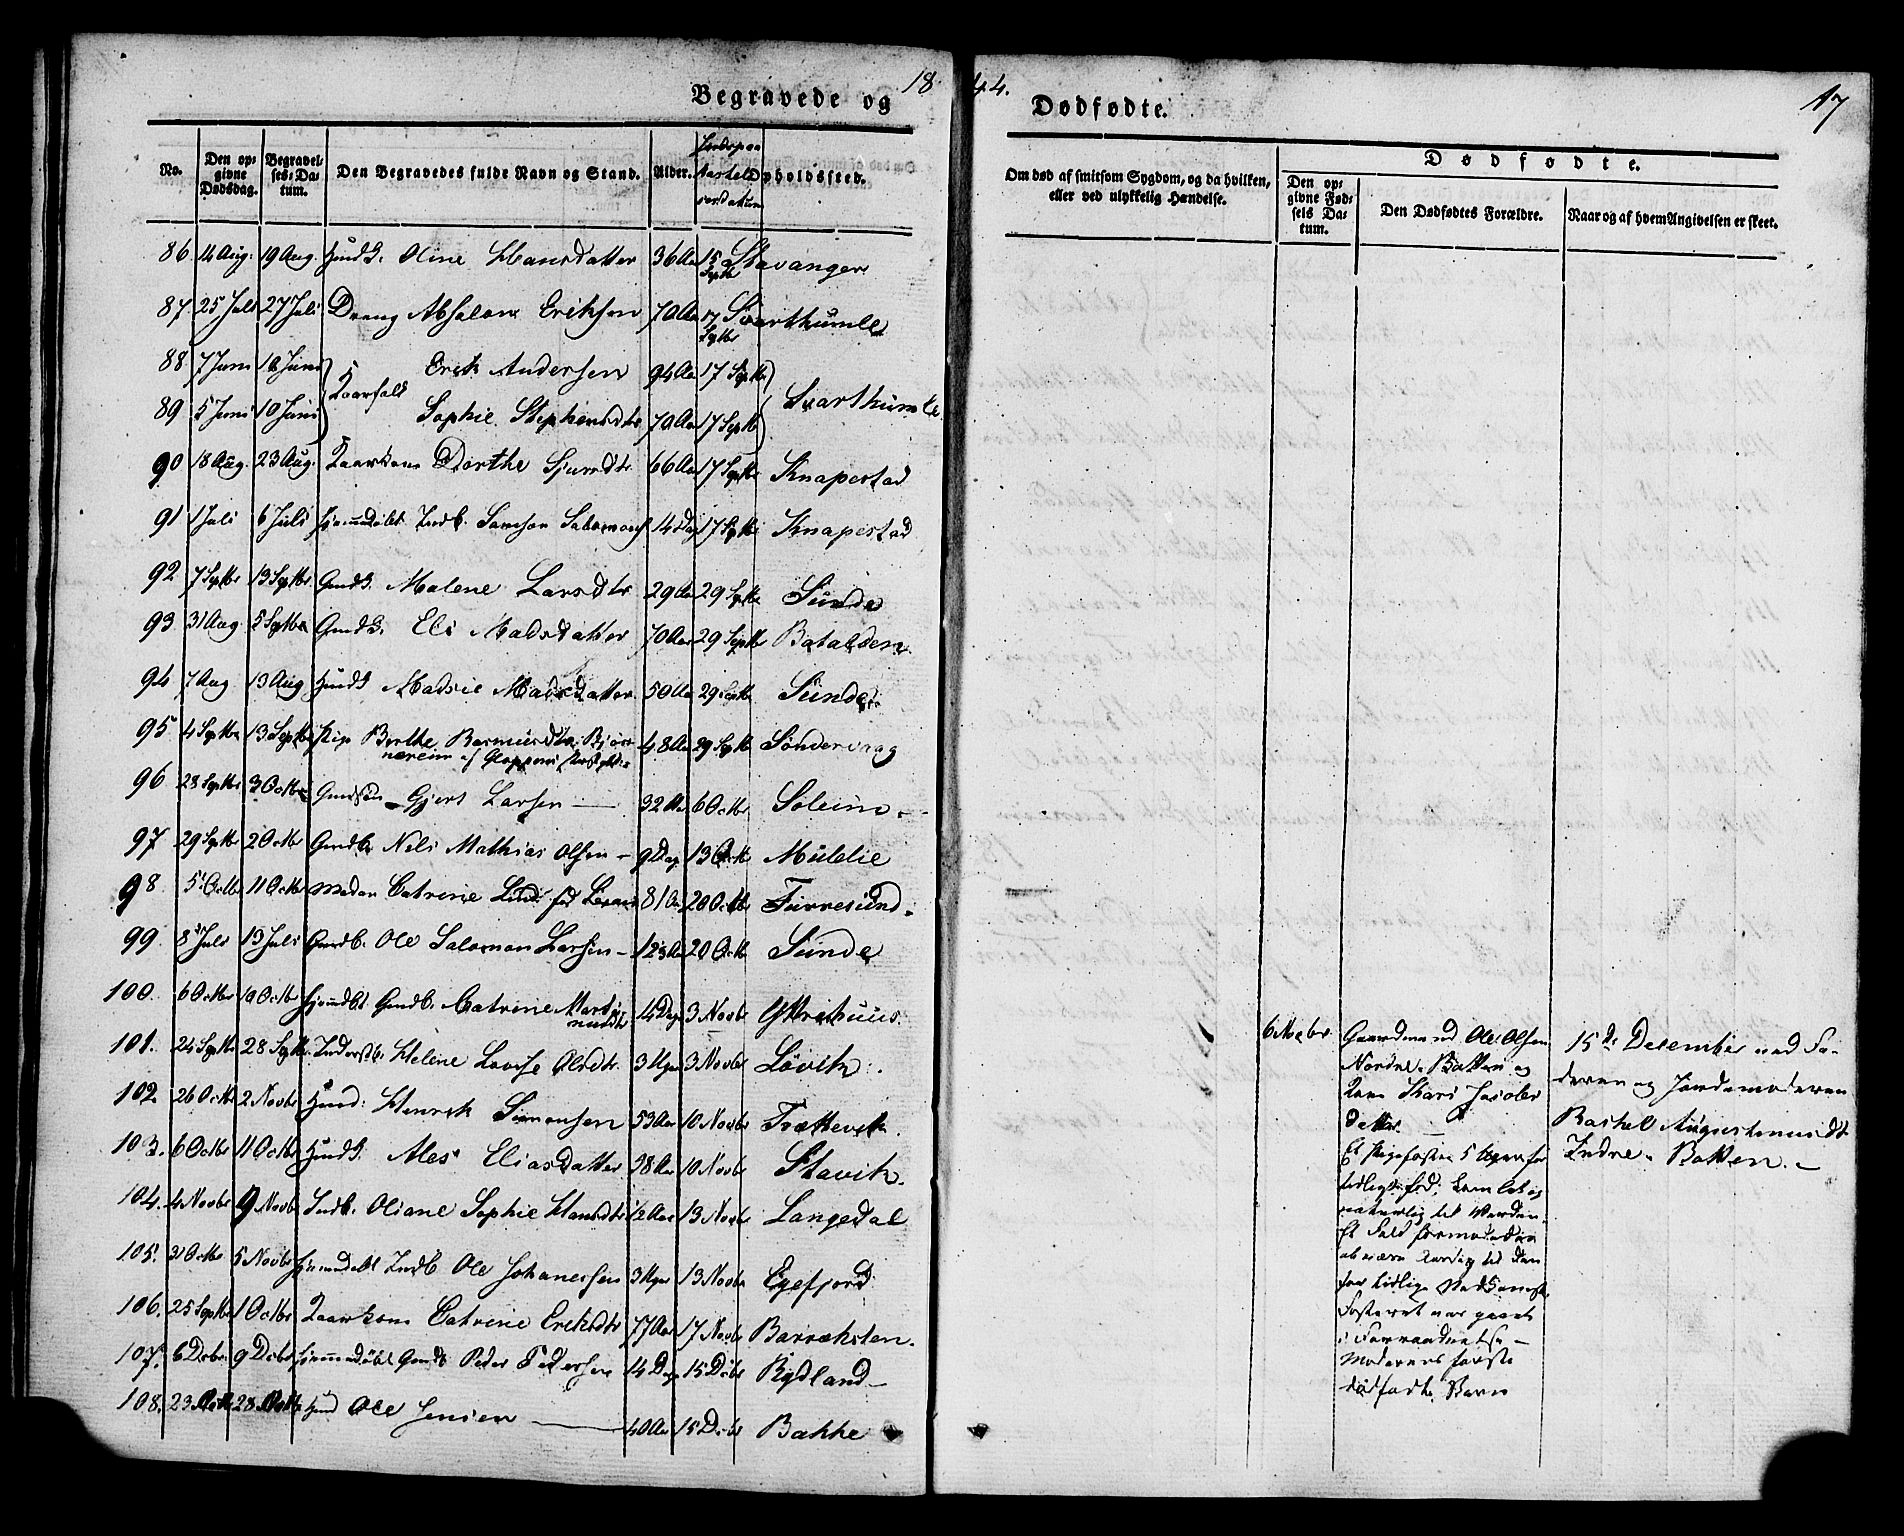 18
Begravede og
No. Den opgivne Dødsdag. Begravelses-Datum. Den Begravedes fulde Navn og Stand. Alder. Jordspaakastelsesdatum Opholdssted.
86 14 Aug. 19 Aug. Oline Hansdatter 36 Aar 15 Septbr Stavanger
87 25 Juli 27 Juli Dreng Absalon Eriksen 7 Aar 17 Septbr Svarthumle
88 7 Juni Juni Kaarfolk Erik Andersen 94 Aar 17 Septbr Svarthumle
89 5 Juni 10 Juni Sophie Stephensdtr 70 Aar 17 Septbr
90 18 Aug. 23 Aug. Kaarkone Dorthe Sjursdtr 66 Aar 17 Septbr Knapestad
91 1 Juli 6 Juli Hjemmedøbt Indb. Samson Salomons 14 Dag 17 Septbr Knapestad
92 7 Septbr 13 Septbr Gmdk. Malene Larsdtr 29 Aar 29 Septbr Sunde
93 31 Aug. 5 Septbr Gmdk. Eli Madsdatter 70 Aar 29 Septbr Batalden
94 7 Aug 13 Aug Madsie Madsdatter 50 Aar 29 Septbr Sunde
95 4 Septbr 13 Septbr Pige Berthe Rasmusdtr
af Gloppens 48 Aar 29 Septbr Søndervaag
96 28 Septbr 3 Octbr Gmdsøn Gjert Larsen 32 Aar 6 Octbr Soleim
97 29 Septbr 2 Octbr Gmdb. Nils Mathias Olsen 9 Dag 13 Octb Muldie
98 5 Octbr 11 Octbr Madam Catrine Lund fød 81 Aar 20 Octbr Furresund
99 8 Juli 13 Juli Gmdb. Ole Salomon Larsen 20 Octb Sunde
100. 6 Octbr 10 Octbr Hjemdbt Gmdb. Catrine Martinusdtr 14 Dage 3 Novbr Yttrehuus.
101. 24 Septbr 28 Septbr Inderstb. Helene Lovise Olsdtr. 3 Uger 3 Novbr Løvik
102. 26 Octbr 2 Novbr Henrik Simensen 53 Aar 10 Novbr Trættevik
103. 6 Octbr 11 Octbr Ales Eliasdatter 38 Aar 10 Novbr Stavik.
104. 4 Novbr 9 Novb Indb. Oliane Sophie Hansdtr 12 Aar 13 Novbr Langedal
105. 31 Octbr 5 Novbr Hjemmedøbt Indb Ole Johanessen 3 Uger 13 Novbr Egefjord
106. 25 Septbr 1 Octbr Kaarkone Catrine Eriksdtr 77 Aar 17 Novbr Barræksten.
107. 6 Debr. 9 Debr Hjemmedøbt Gmdb Peder Pedersen 14 Dage 15 Debr Rydland
108. 23 Novbr 28 Novbr Ole Jensen 40 Aar 15 Debr Bakke
44.
17
Dødfødte.
Om død af smitsom Sygdom, og da hvilken, eller ved ulykkelig Hændelse.
Dødfødte.
Den opgivne Fødsels Datum. Den Dødfødtes Forældre. Naar og af hvem Angivelsen er skeet.
6 Novbr Gaardmand Ole Olsen
Nordre Botten og
Kone Kari Jacobs
datter
Et Pigefoster 5 Uger for
tidligt fød; kom let og
naturlig til Verden.
Et Fald formodedes
at være Aarsag til den
for tidlige Nedkomst.
Fosteret var gaaet
i Forraadnelse
Moderens første
dødfødte Barn
15de December ved Fa-
deren og Jordemoderen
Rachel Augustinusdt
Indre Botten.